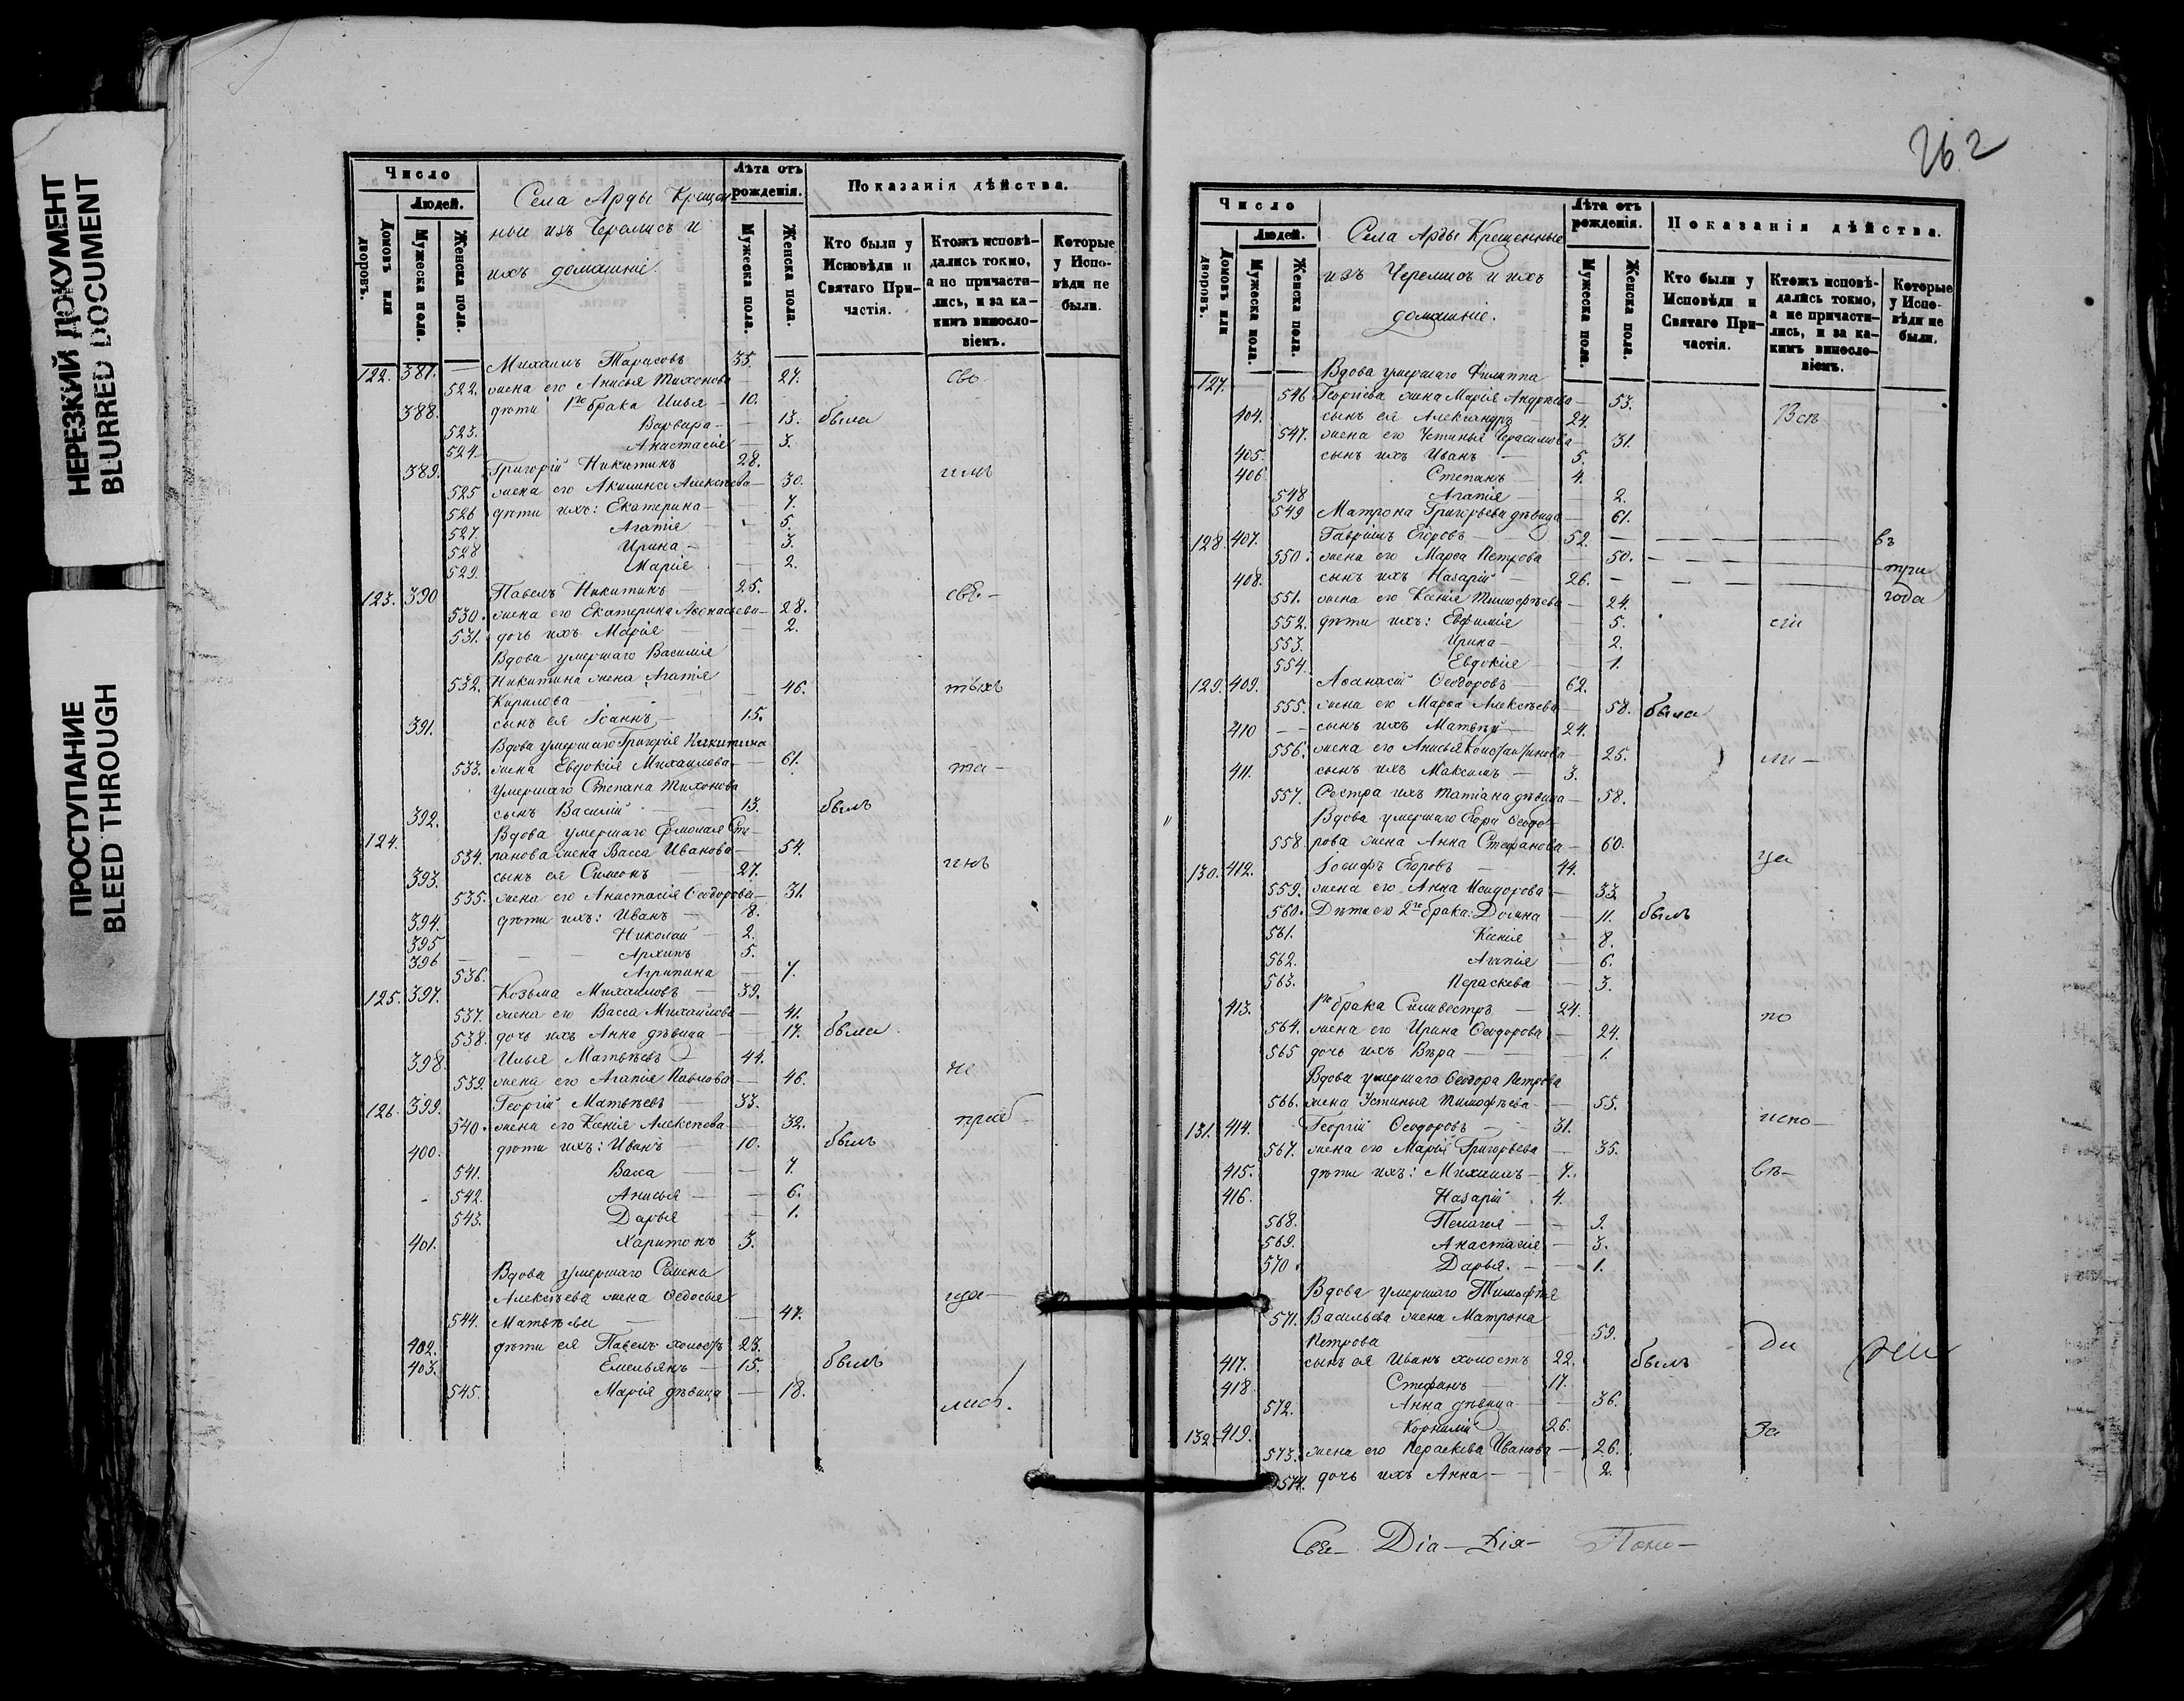 НЕРЕЗКИЙ ДОКУМЕНТ
BLURRED DOCUMENT
ПРОСТУПАНИЕ
BLEED THROUGH
Число
Людей.
Домовъ или дворовъ.
Мужеска пола.
Женска пола.
Села Арды Крещен
ные изъ Черемисъ и
ихъ домашніе.
Лѣта отъ рожденія.
Мужеска пола.
Женска пола.
Показанія дѣйства.
Кто были у Исповѣди и Святаго Причастія.
Ктожъ исповѣдались токмо, а не причастились, и за какимъ винословіемъ.
Которые у Исповѣди не были.
122. 387. — Михаилъ Тарасовъ 35.
522. жена его Анисья Тихонова — 27. сво
388. дѣти 1го брака Илья — 10.
523. Варвара — 13. была
524. Анастасія — 3.
389. Григорій Никитинъ 28.
525 жена его Акилина Алексѣева — 30.
526 дѣти ихъ: Екатерина — 7.
527. Агапія 5.
528 Ирина — 3.
529. Марія — 2.
123. 390 Павелъ Никитинъ — 25.
530. жена его Екатерина Аѳонасьева — 28.
531. дочь ихъ Марія — 2.
Вдова умершаго Василія
532. Никитина жена Агапія — 46.
Кирилова
391. сынъ ея Іоаннъ — 15.
Вдова умершаго Григорія Никитина
533. жена Евдокія Михаилова — 61. та—
умершаго Степана Тихонова
392. сынъ Василій — 13. былъ
124. Вдова умершаго Ермолая Сте—
534. панова жена Васса Иванова — 54.
393. сынъ ея Симеонъ — 27.
535. жена его Анастасія Ѳеодорова — 31.
394. дѣти ихъ: Иванъ — 8.
395 Николай — 2.
396 — — — Архипъ 5.
536. Агрипина — 7.
125. 397. Козьма Михаиловъ — 39.
537. жена его Васса Михаилова — 41.
538. дочь ихъ Анна дѣвица — 17. была
398. Илья Матвѣевъ — 44.
539. жена его Агапія Павлова — 46. не
126. 399. Георгій Матвѣевъ — 33.
540. жена его Ксенія Алексѣева — 32.
400. дѣти ихъ: Иванъ — 10. былъ
541. Васса — 7.
542. Анисья — 6.
543. Дарья — 1.
401. Харитонъ 3.
Вдова умершаго Семена
Алексѣева жена Ѳедосья
544. Матвѣева — 47.
402. дѣти ея Павелъ холостъ 23.
403. Емельянъ — 15. былъ
545. Марія дѣвица — 18.
лись.
262
Число
Людей.
Домовъ или дворовъ.
Мужеска пола.
Женска пола.
Села Арды Крещенные
изъ Черемисъ и ихъ
домашніе.
Лѣта отъ рожденія.
Мужеска пола.
Женска пола.
Показанія дѣйства.
Кто были у Исповѣди и Святаго Причастія.
Ктожъ исповѣдались токмо, а не причастились, и за какимъ винословіемъ.
Которые у Исповѣди не были.
127. Вдова умершаго Филиппа
546 Георгіева жена Марія Андрѣева — 53.
404. сынъ ея Александръ — 24. Всѣ
547. жена его Устинья Герасимова — 31.
405. сынъ ихъ Иванъ — 5.
406 Степанъ — 4.
548 Агапія — 2.
549 Матрона Григорьева дѣвица — 61.
128. 407. Гавріилъ Егоровъ — 52. — въ
550. жена его Марѳа Петрова 50. — три
408. сынъ ихъ Назарій — 26. — года
551. жена его Ксенія Тимоѳѣева — 24.
552. дѣти ихъ: Евфимія — 5. сіи
553. Ирина — 2.
554. Евдокія — 1.
129. 409. Аѳанасій Ѳеодоровъ — 62.
555. жена его Марѳа Алексѣева — 58. была
410 — сынъ ихъ Матвѣй — 24.
556. жена его Анисья Константинова — 25. ли—
411. сынъ ихъ Максимъ — 3.
557. Сестра ихъ Татіана дѣвица — 58.
Вдова умершаго Егора Ѳеодо—
558 рова жена Анна Стефанова — 60.
130. 412. Іосифъ Егоровъ — 44. ца
559. жена его Анна Исидорова — 33
560. Дѣти его 2го брака: Домна — 11. былъ
561. Ксенія — 8.
562. Агапія — 6.
563. Параскева — 3.
413. 1го брака Силивестръ — 24. по
564. жена его Ирина Ѳеодорова — 24.
565 дочь ихъ Вѣра — 1.
Вдова умершаго Ѳеодора Петрова
566. жена Устинья Тимоѳѣева — 55.
131. 414. Георгій Ѳеодоровъ — 31. испо—
567. жена его Марія Григорьева — 35.
415. дѣти ихъ: Михаилъ — 7. вѣ—
416. Назарій 4.
568. Пелагія — 9.
569. Анастасія — 3.
570. Дарья — 1.
Вдова умершаго Тимофѣя
571. Васильева жена Матрона
Петрова 59.
417. сынъ ея Иванъ холостъ 22. былъ
418 Стефанъ 17.
572. Анна дѣвица — 36.
132. 419. Корнилій 26. За
573. жена его Параскева Иванова — 26.
574. дочь ихъ Анна — 2.
Свя— Діа— Дія— Поно—